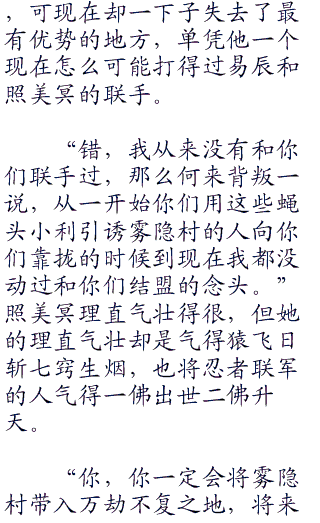 ，可现在却一下子失去了最
有优势的地方，单凭他一个
现在怎么可能打得过易辰和
照美冥的联手。
“错，我从来没有和你
们联手过，那么何来背叛一
说，从一开始你们用这些蝇
头小利引诱雾隐村的人向你
们靠拢的时候到现在我都没
动过和你们结盟的念头。”
照美冥理直气壮得很，但她
的理直气壮却是气得猿飞日
斩七窍生烟，也将忍者联军
的人气得一佛出世二佛升
天。
“你，你一定会将雾隐
村带入万劫不复之地，将来